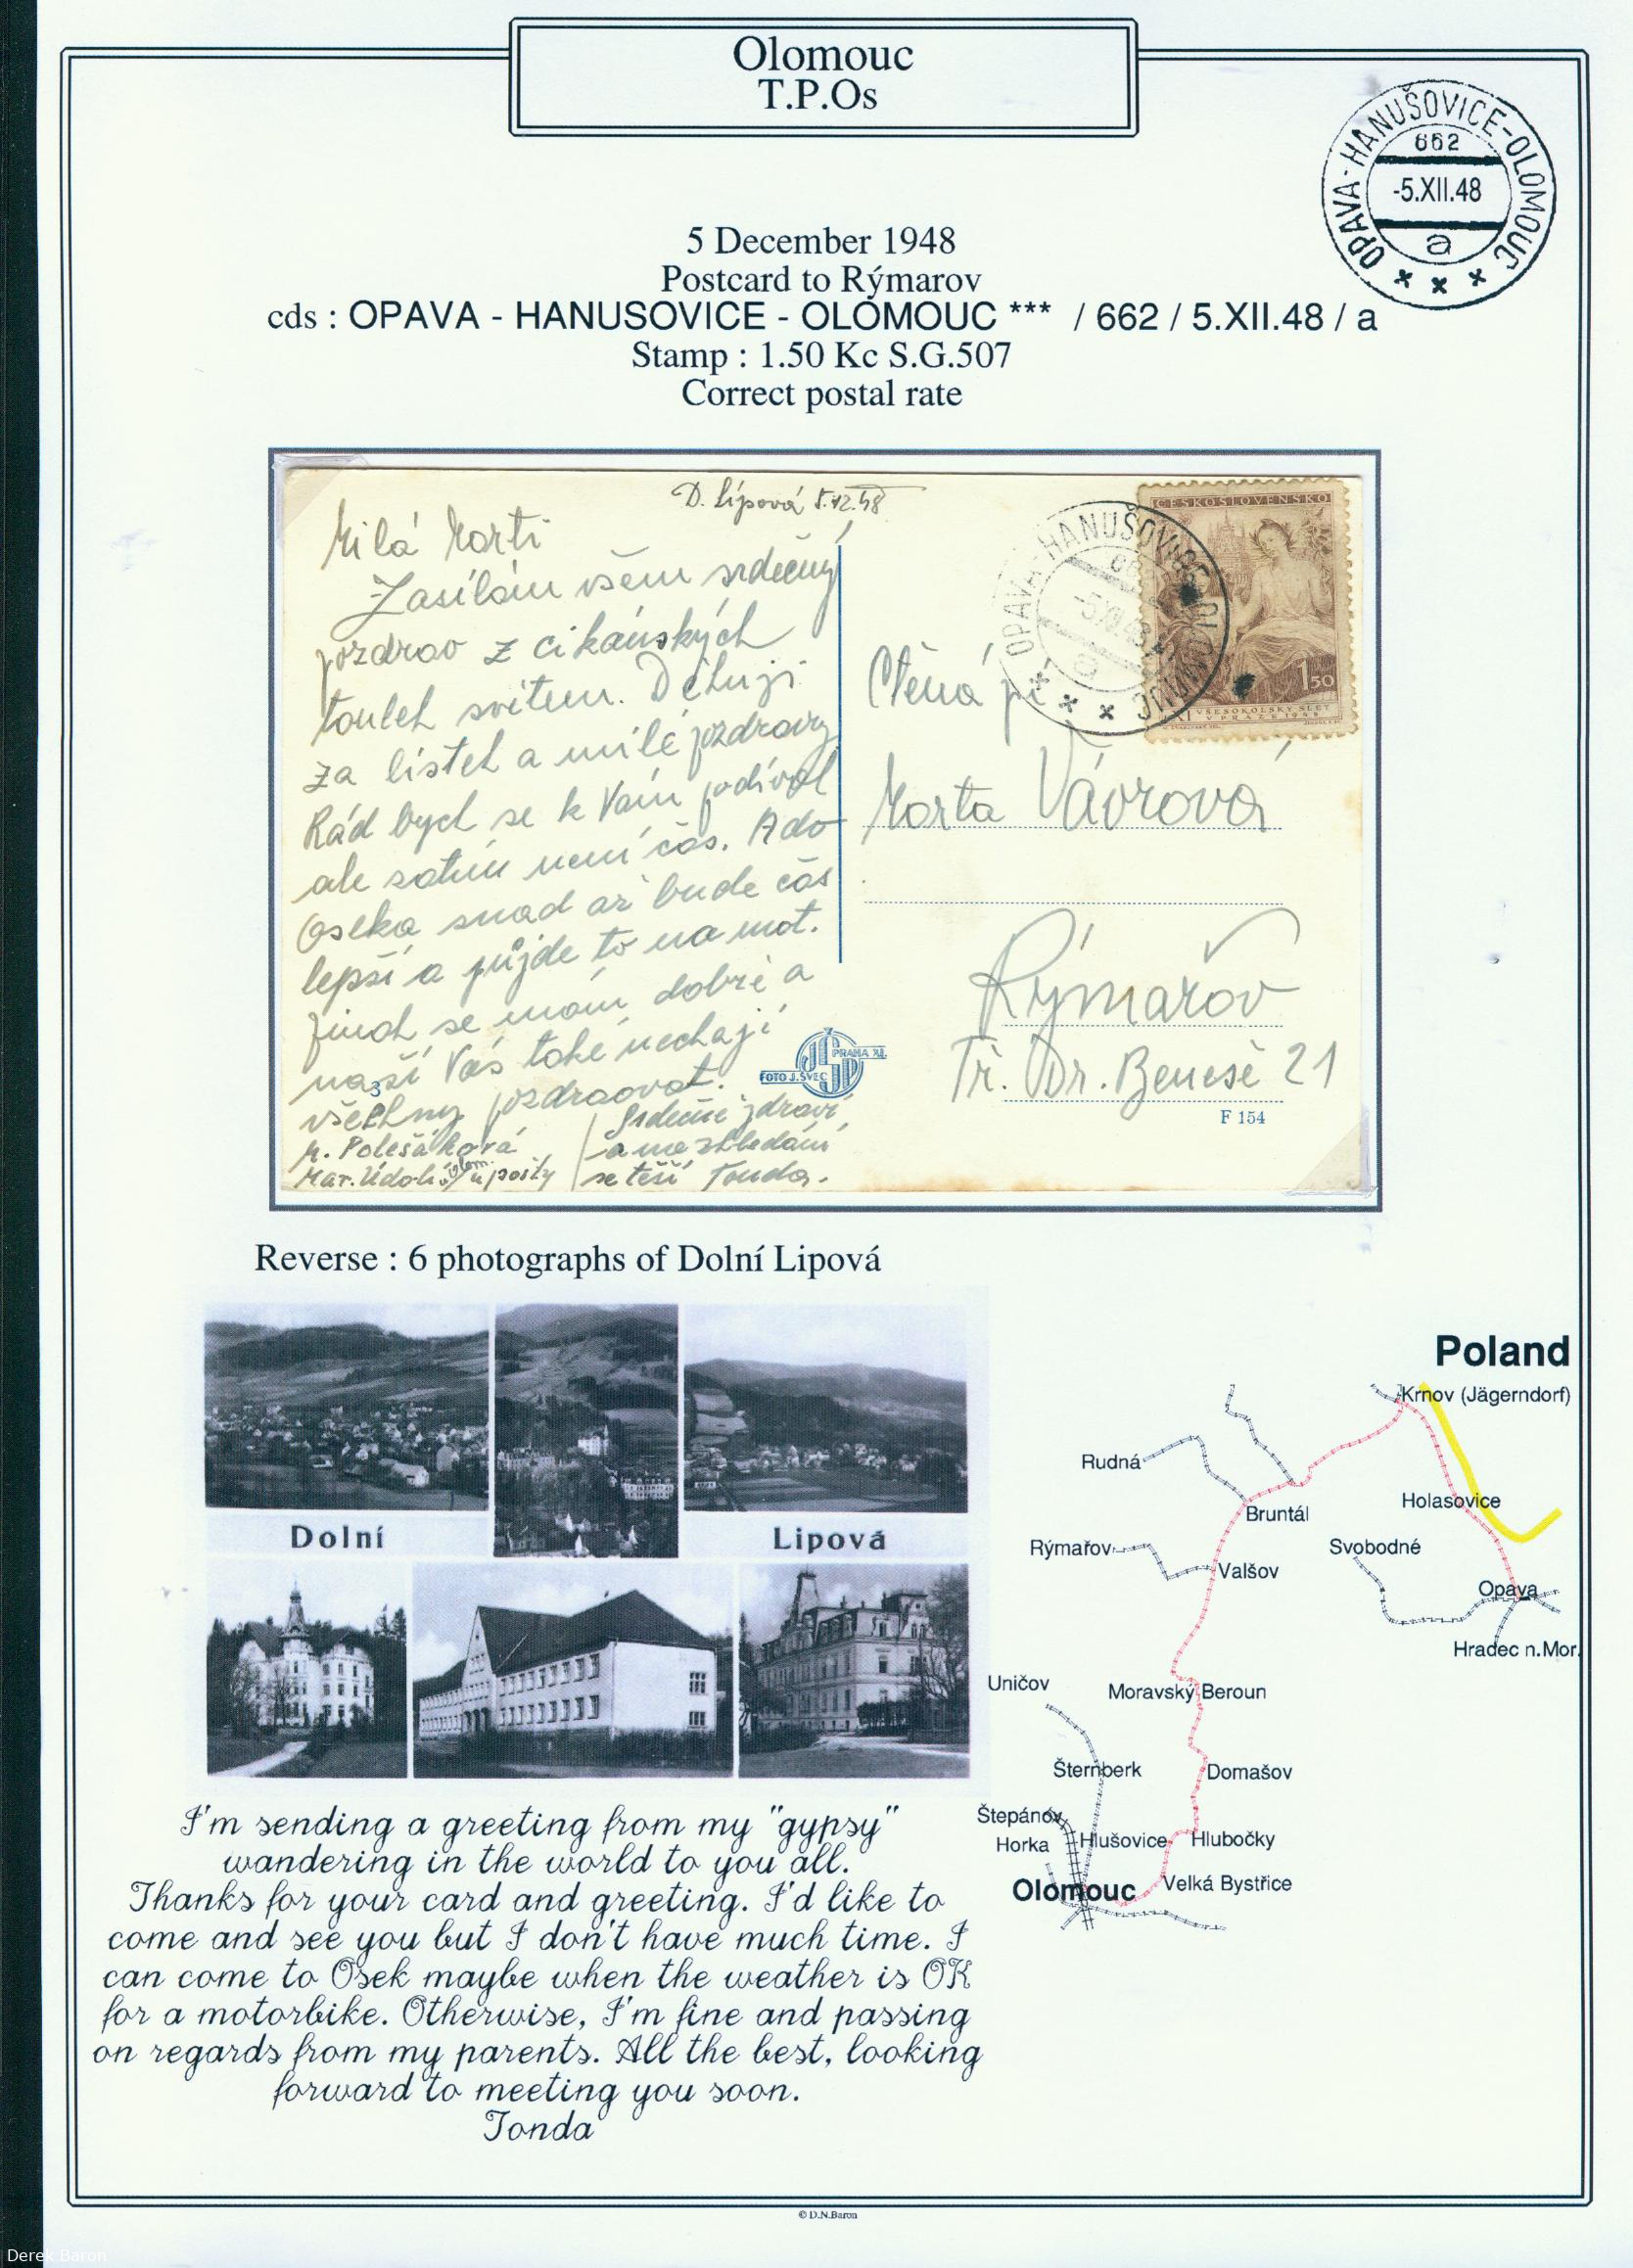 Olomouc
T.P.Os
OPAVA-HANUŠOVICE-OLOMOUC
662
-5.XII.48
a
5 December 1948
Postcard to Rýmarov
cds : OPAVA - HANUSOVICE - OLOMOUC *** / 662 / 5.XII.48 / a
Stamp : 1.50 Kc S.G.507
Correct postal rate
D. Lipová 5.12.48
Milá Marti
Zasílám všem srdečný
pozdrav z cikánských
toulek světem. Děkuji
za lístek a milé pozdravy
Rád bych se k Vám podíval
ale zatím není čas. A do
Oseka snad až bude čas
lepší a půjde to na mot.
Jinak se mám dobře a
naší Vás také nechají
všechny pozdravovat.
M. Polešáková
Mar. Údolí u pošty
Srdečně zdraví
a na shledání
se těší Tonda.
OPAVA-HANUŠOVICE-OLOMOUC
-5.XII.48
a
ČESKOSLOVENSKO
1.50
XI VŠESOKOLSKÝ SLET
V PRAZE 1948
Ctěná pí
Marta Vávrová
Rýmařov
Tř. Dr. Beneše 21
PRAHA XI.
FOTO J. ŠVEC
3
F 154
Reverse : 6 photographs of Dolní Lipová
Dolní Lipová
I'm sending a greeting from my "gypsy"
wandering in the world to you all.
Thanks for your card and greeting. I'd like to
come and see you but I don't have much time. I
can come to Osek maybe when the weather is OK
for a motorbike. Otherwise, I'm fine and passing
on regards from my parents. All the best, looking
forward to meeting you soon.
Tonda
Poland
Krnov (Jägerndorf)
Rudná
Holasovice
Bruntál
Rýmařov
Svobodné
Valšov
Opava
Hradec n.Mor.
Uničov
Moravský Beroun
Šternberk
Domašov
Štepánov
Horka
Hlušovice
Hlubočky
Olomouc
Velká Bystřice
© D.N.Baron
Derek Baron